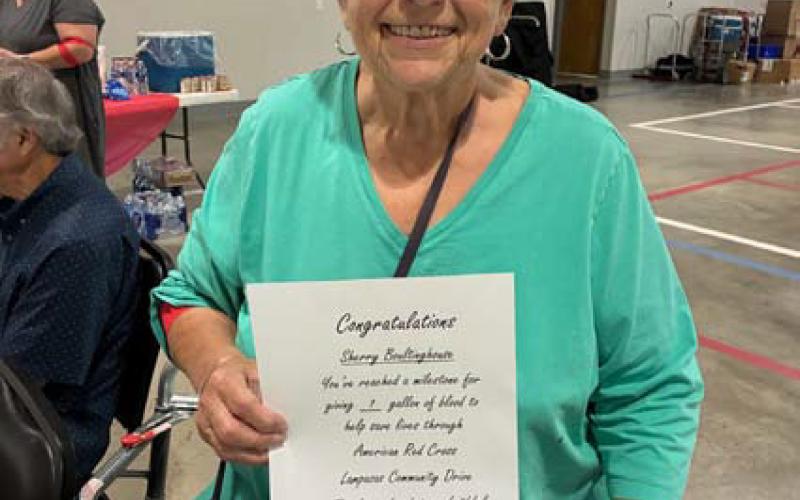 Congratulations
Sherry Boultinghouse
You've reached a milestone for
giving 1 gallon of blood to
help save lives through
American Red Cross
Lampasas Community Drive